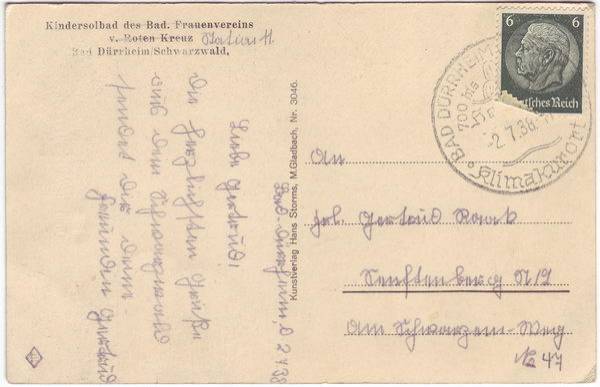 Kindersolbad des Bad. Frauenvereins
v. Roten Kreuz Station II
Bad Dürrheim/Schwarzwald,
Liebe Gertrud!
Die herzlichsten Grüße
aus dem Schwarzwald
sendet Dir deine
Freundin Gertrud
Bad-Dürrheim, d. 2.7.38
Kunstverlag Hans Storms, M.Gladbach, Nr. 3046.
6 6
Deutsches Reich
BAD DÜRRHEIM
700 bis
-2.7.38
Klimakurort
An
Frl. Gertrud
Senftenberg N/L
Am Schwarzen-Weg
No 47